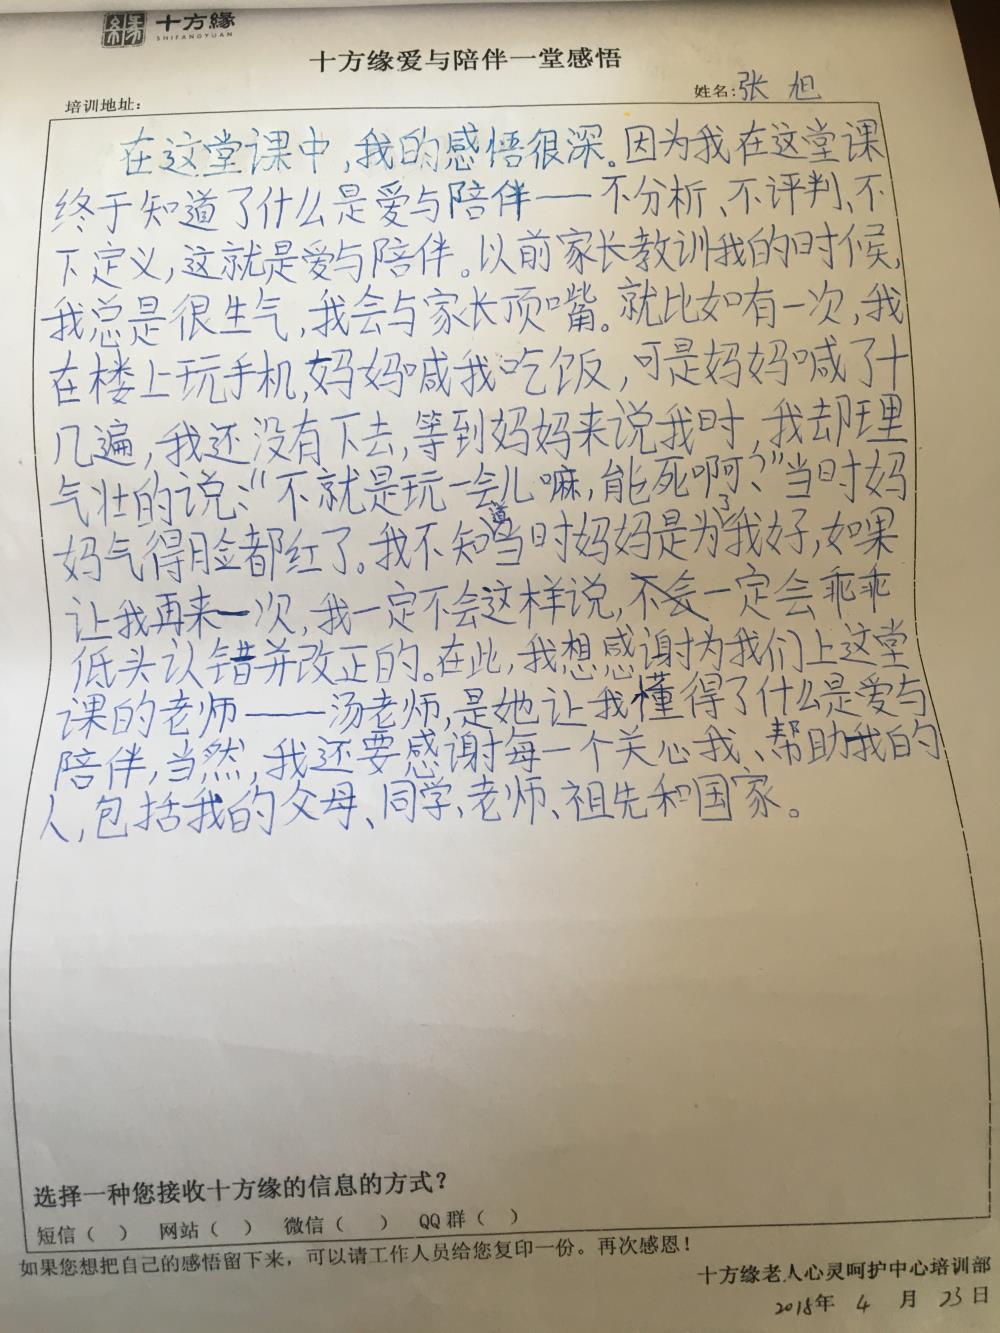 十方緣
SHIFANGYUAN
十方缘爱与陪伴一堂感悟
培训地址： 姓名：张旭
在这堂课中，我的感悟很深。因为我在这堂课
终于知道了什么是爱与陪伴——不分析、不评判、不
下定义，这就是爱与陪伴。以前家长教训我的时候，
我总是很生气，我会与家长顶嘴。就比如有一次，我
在楼上玩手机，妈妈喊我吃饭，可是妈妈喊了十
几遍，我还没有下去，等到妈妈来说我时，我却理
气壮的说：“不就是玩一会儿嘛，能死啊？”当时妈
妈气得脸都红了。我不知道当时妈妈是为了我好，如果
让我再来一次，我一定不会这样说，一定会乖乖
低头认错并改正的。在此，我想感谢为我们上这堂
课的老师——汤老师，是她让我懂得了什么是爱与
陪伴，当然，我还要感谢每一个关心我、帮助我的
人，包括我的父母、同学、老师、祖先和国家。
选择一种您接收十方缘的信息的方式？
短信（ ） 网站（ ） 微信（ ） QQ群（ ）
如果您想把自己的感悟留下来，可以请工作人员给您复印一份。再次感恩！
十方缘老人心灵呵护中心培训部
2018年 4 月 23 日